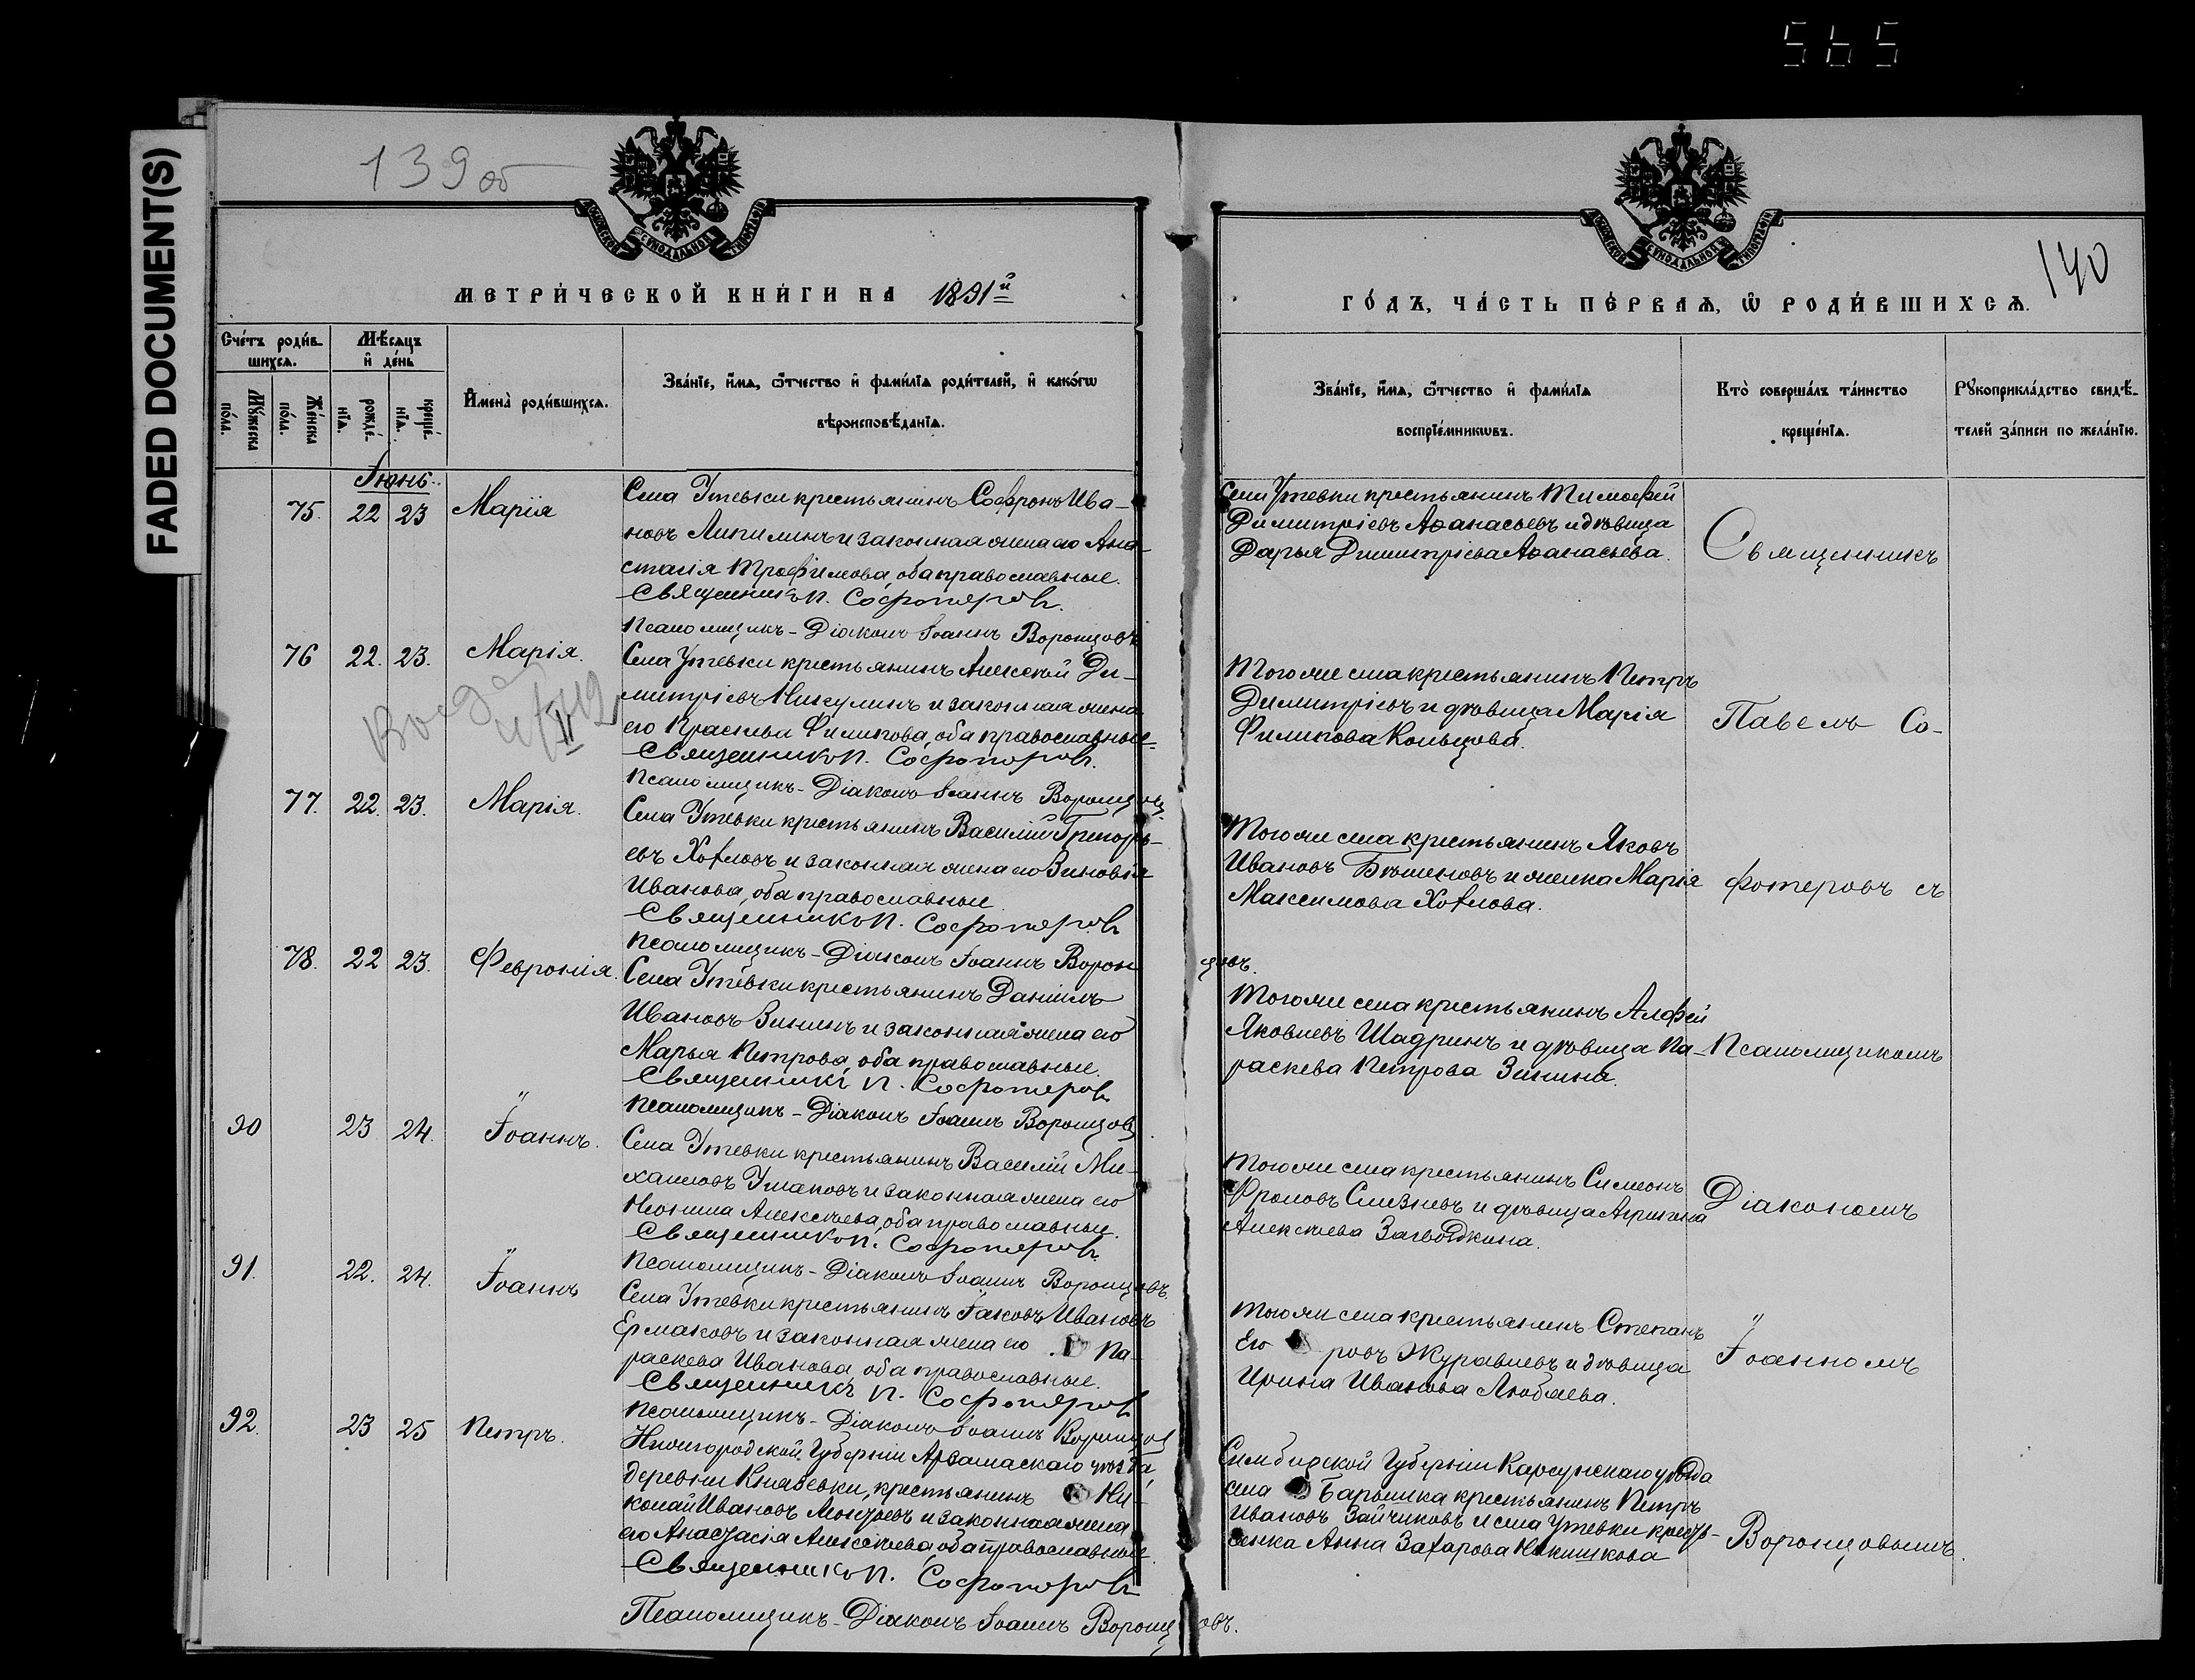 565
FADED DOCUMENT(S)
139 об
140
МЕТРИ́ЧЕСКОЙ КНИ́ГИ НА 1891й
ГО́ДЪ, ЧА́СТЬ ПЕ́РВАѦ, Ѿ РОДИ́ВШИХСѦ.
Сче́тъ роди́в-
шихсѧ.
Мѣ́сѧцъ
и҆ де́нь
Мꙋ́жеска
по́ла.
Же́нска
по́ла.
рожде́-
нїѧ.
креще́-
нїѧ.
И҆мена̀ роди́вшихсѧ.
Зва́нїе, и҆́мѧ, ѻ҆́тчество и҆ фами́лїѧ роди́телей, и҆ како́гѡ
вѣроисповѣ́данїѧ.
Зва́нїе, и҆́мѧ, ѻ҆́тчество и҆ фами́лїѧ
воспрїе́мникѡвъ.
Кто̀ соверша́лъ та́инство
креще́нїѧ.
Рꙋкоприкла́дство свидѣ́-
телей за́писи по жела́нїю.
Іюнь
75. 22 23 Марія
Села Утевки крестьянинъ Софронъ Ива-
новъ Липилинъ и законная жена его Ана-
стасія Трофимова, оба православные.
Священникъ П. Софотеровъ.
Псаломщикъ-Діаконъ Іоаннъ Воронцовъ
Села Утевки крестьянинъ Тимоѳей
Димитріевъ Аѳанасьевъ и дѣвица
Дарья Димитріева Аѳанасьева.
Священникъ
76 22. 23. Марія.
Села Утевки крестьянинъ Алексѣй Ди-
митріевъ Никулинъ и законная жена
его Ѳилипова, оба православные.
Священникъ П. Софотеровъ.
Псаломщикъ-Діаконъ Іоаннъ Воронцовъ
Того же села крестьянинъ Петръ
Димитріевъ и дѣвица Марія
Филипова Кольцова.
Павелъ Со-
77. 22. 23. Марія.
Села Утевки крестьянинъ Василій Григорь-
евъ Хохловъ и законная жена его Зиновія
Иванова, оба православные.
Священникъ П. Софотеровъ
Псаломщикъ-Діаконъ Іоаннъ Воронцовъ.
Того же села крестьянинъ Яковъ
Ивановъ и женка Марія
Максимова Хохлова.
фотеровъ съ
78. 22 23. Февронія.
Села Утевки крестьянинъ Даніилъ
Ивановъ Зининъ и законная жена его
Марья Петрова, оба православные.
Священникъ П. Софотеровъ
Псаломщикъ-Діаконъ Іоаннъ Воронцовъ
Того же села крестьянинъ Алфей
Яковлевъ Шадринъ и дѣвица Па-
раскева Петрова Зинина.
Псаломщикомъ
90 23 24. Іоаннъ.
Села Утевки крестьянинъ Василій Ми-
хаиловъ Ушаковъ и законная жена его
Неонила Алексѣева, оба православные.
Священникъ П. Софотеровъ
Псаломщикъ-Діаконъ Іоаннъ Воронцовъ.
Того же села крестьянинъ Симеонъ
Фроловъ и дѣвица Агрипина
Алексѣева Загвоздкина.
Діакономъ
91. 22. 24. Іоаннъ
Села Утевки крестьянинъ Іаковъ Ивановъ
Ермаковъ и законная жена его Па-
раскева Иванова, оба православные.
Священникъ П. Софотеровъ
Псаломщикъ-Діаконъ Іоаннъ Воронцовъ
Того же села крестьянинъ Степанъ
Его ровъ Журавлевъ и дѣвица
Ирина Иванова Любаева.
Іоанномъ
92. 23 25 Петръ.
Нижегородской Губерніи Арзамаскаго уѣзда
деревни Князевки, крестьянинъ Ни-
колай Ивановъ и законная жена
его Анастасія Алексѣева, оба православные.
Священникъ П. Софотеровъ
Псаломщикъ-Діаконъ Іоаннъ Воронцовъ.
Симбирской Губерніи Карсунскаго уѣзда
села Барышка крестьянинъ Петръ
Ивановъ Зайчиковъ и села Утевки кресть-
янка Анна Захарова
Воронцовымъ.